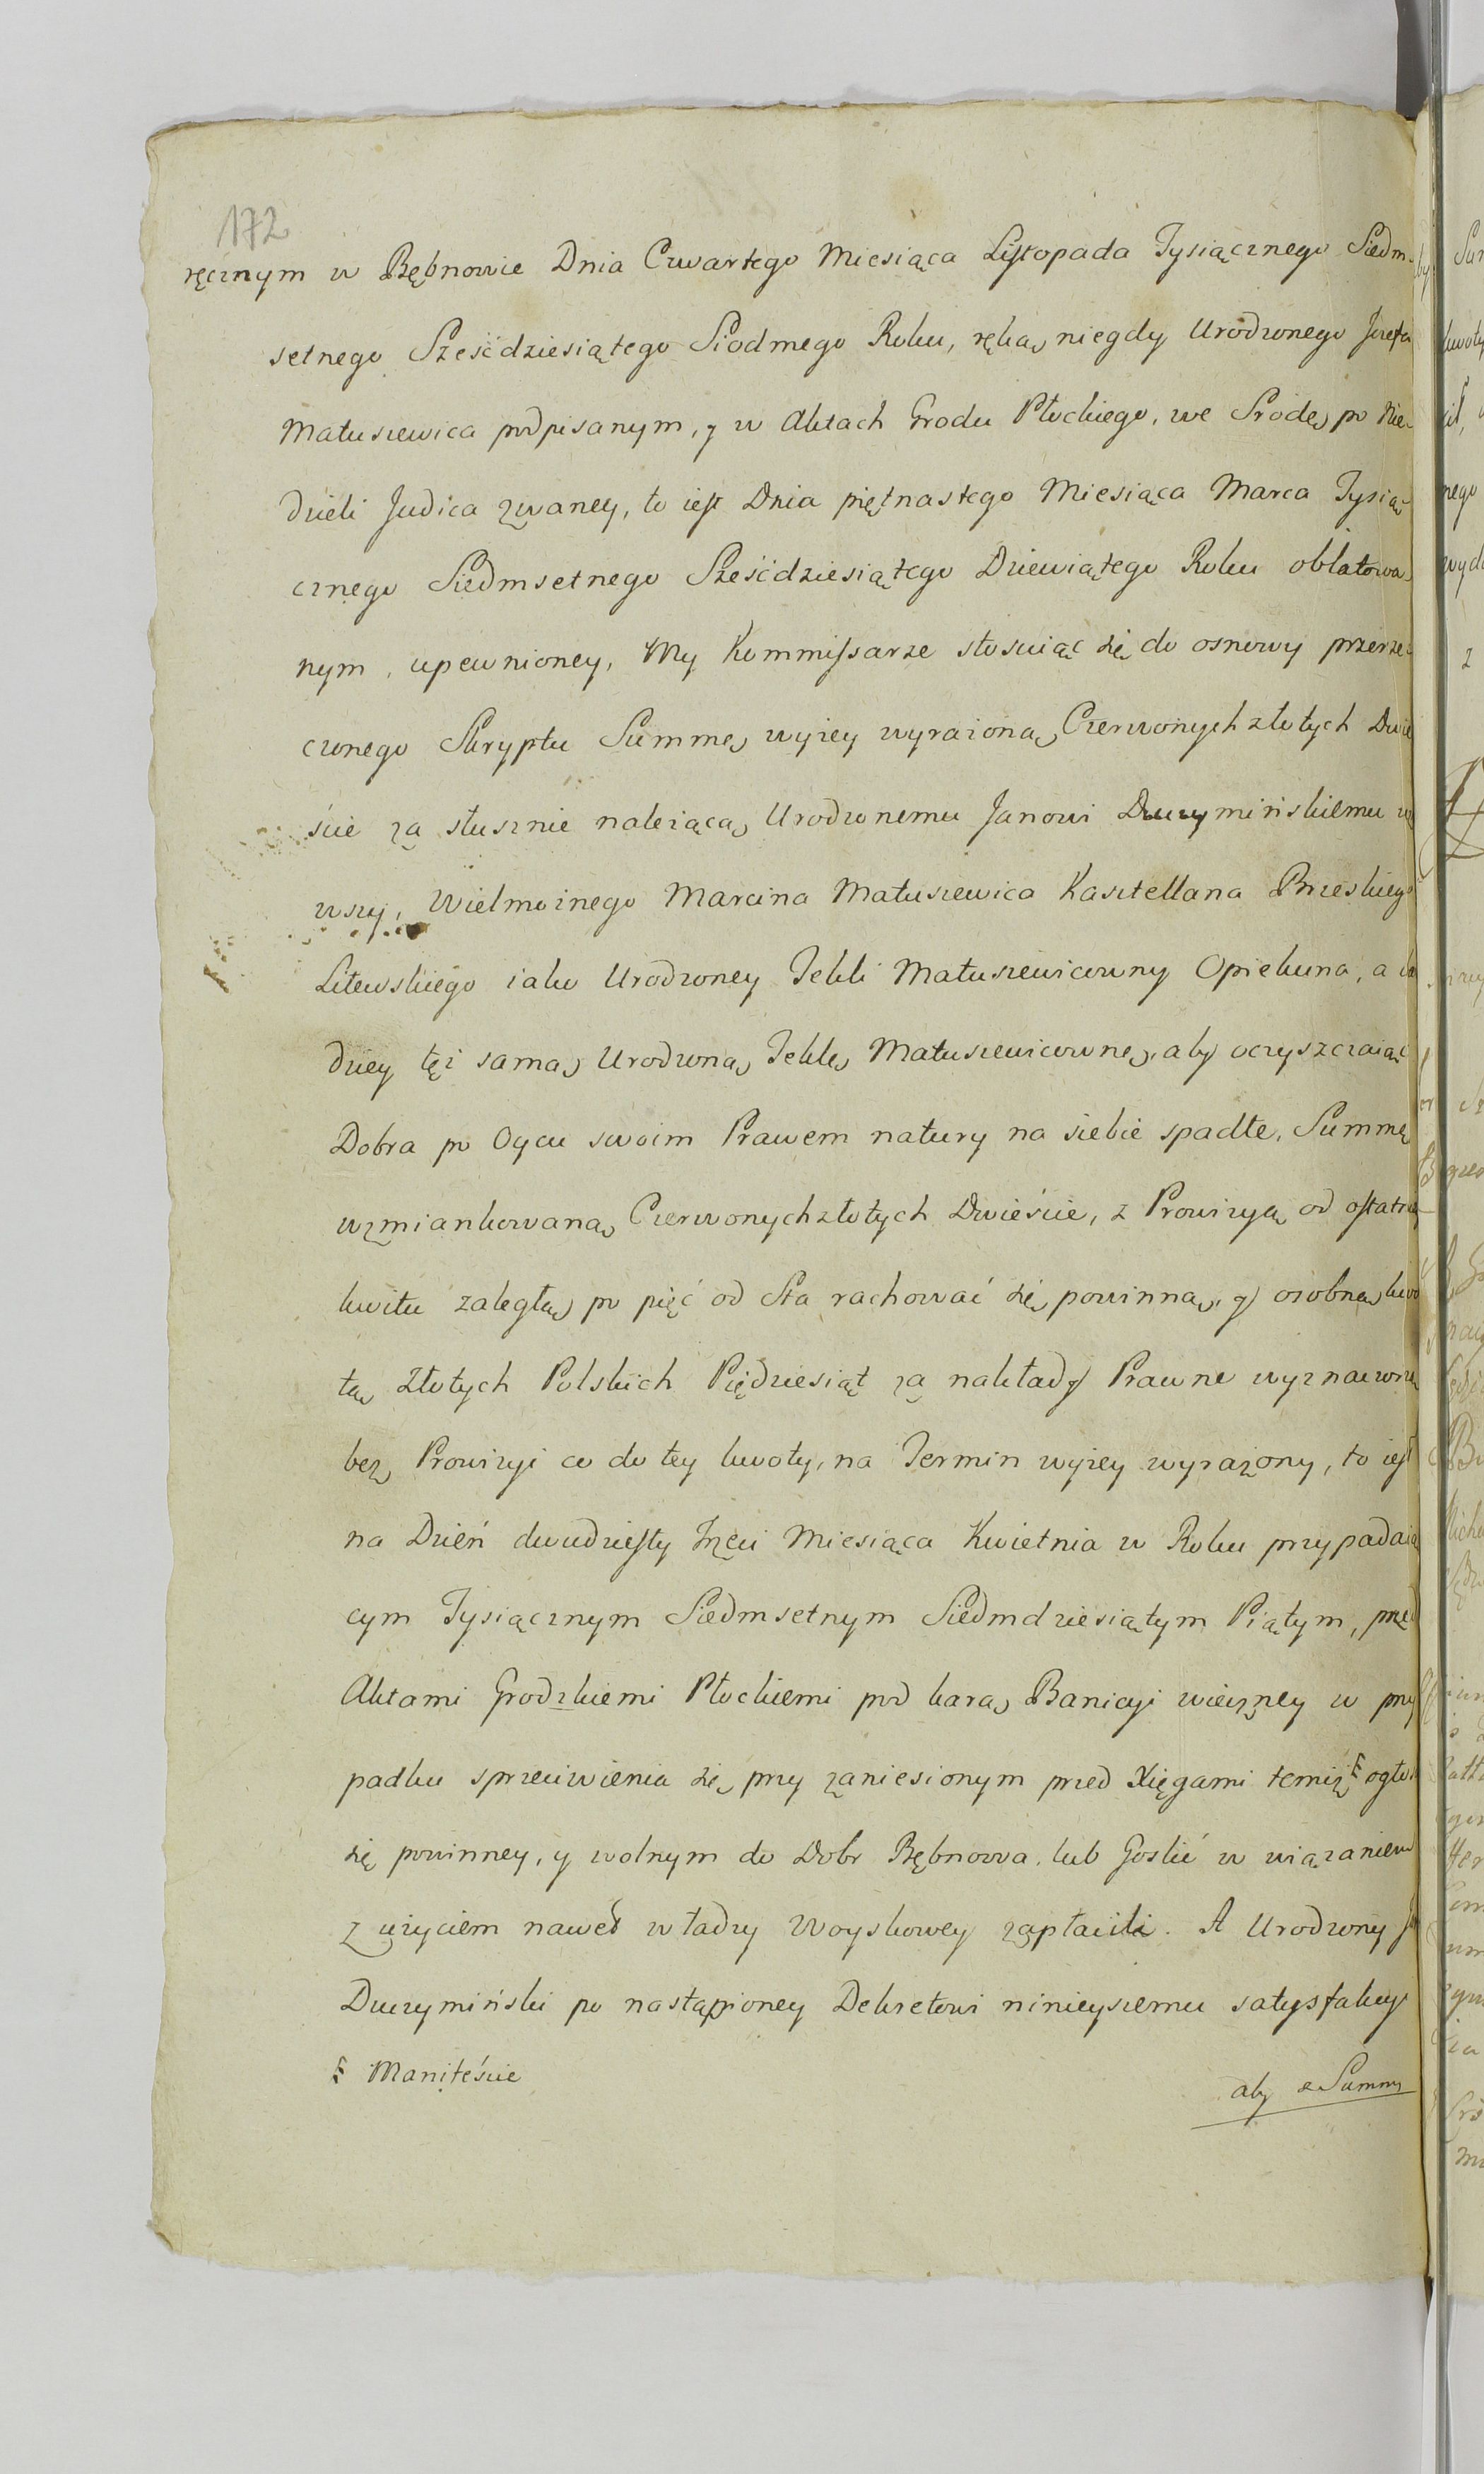 172
ręcznym w Bębnowie Dnia Czwartego Miesiąca Listopada Tysiącznego Siedm-
setnego Sześćdziesiątego Siodmego Roku, ręką niegdy Urodzonego Jozefa
Matuszewica podpisanym, y w Aktach Grodu Płockiego, we Srodę po Nie-
dzieli Judica zwaney, to iest Dnia piętnastego Miesiąca Marca Tysią-
cznego Siedmsetnego Sześćdziesiątego Dziewiątego Roku oblatowa-
nym, upewnioney, My Kommissarze stosuiąc się do osnowy przerze-
czonego Skryptu Summę wyżey wyrażoną Czerwonych złotych Dwie
ście za słusznie należącą Urodzonemu Janowi Duczymińskiemu
wszy, Wielmożnego Marcina Matuszewica Kasztellana Brzeskiego
Litewskiego iako Urodzoney Tekli Matuszewicowny Opiekuna, a
dziey tęż samą Urodzoną Teklę Matuszewicownę, aby oczyszczaiąc
Dobra po Oycu swoim Prawem natury na siebie spadłe, Summę
wzmiankowaną Czerwonych złotych Dwieście, z Prowizyą od ostatn
kwitu zaległą po pięć od Sta rachować się powinną, y osobną kwo
tą Złotych Polskich Pięдziesiąt za nakłady Prawne wyznaczoną
bez Prowizyi co do tey kwoty, na Termin wyżey wyrażony, to iest
na Dzień dwudziesty trzeci Miesiąca Kwietnia w Roku przypadaią
cym Tysiącznym Siedmsetnym Siedmdziesiątym Piątym, przed
Aktami Grodzkiemi Płockiemi pod karą Banicyi wieczney w przy
padku sprzeciwienia się przy zaniesionym przed Xięgami temiż § ogło
się powinney, y wolnym do Dobr Bębnowa, lub Goslic w wiązaniem
z użyciem nawet władzy Woyskowey zapłacili. A Urodzony
Duczymiński po nastąpioney Dekretowi ninieyszemu satysfakcy
§ Manifeście
aby z Summy